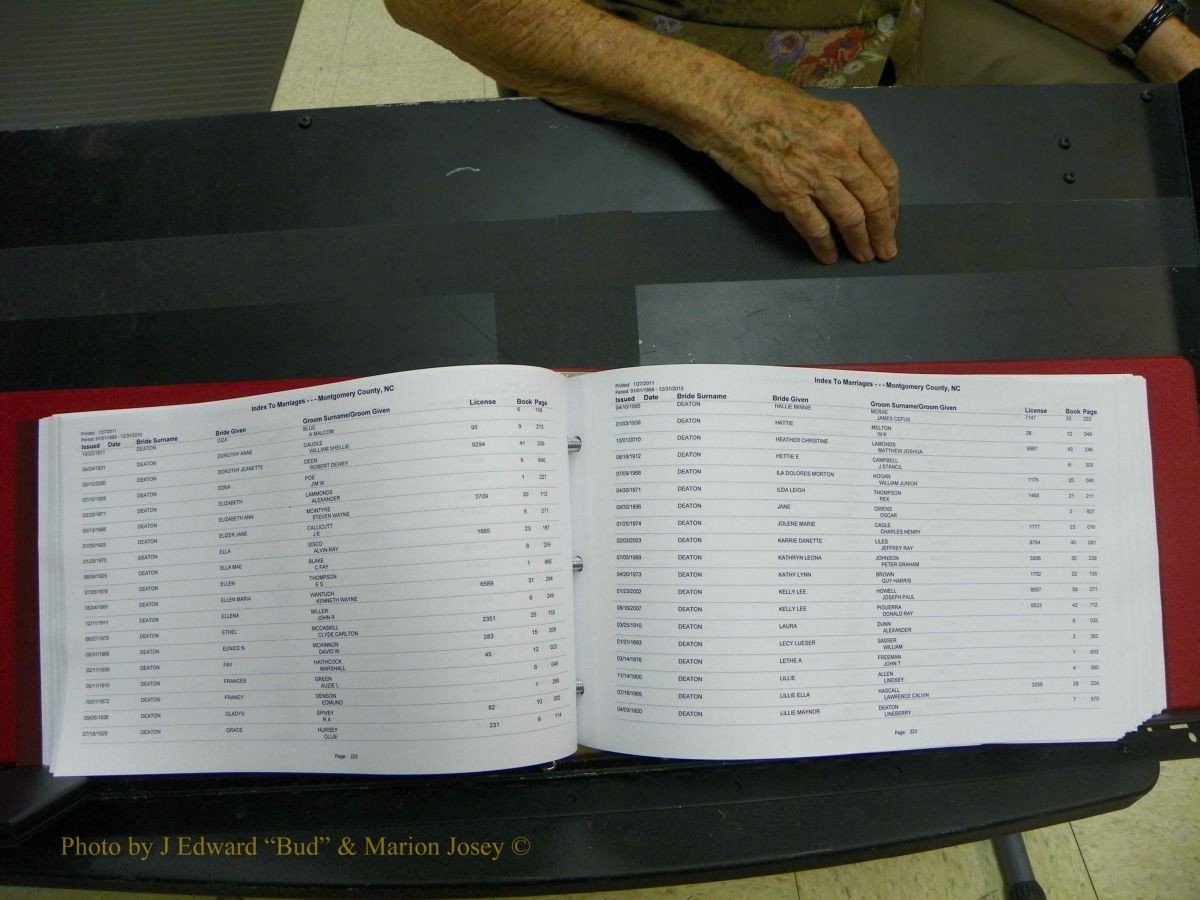 Index To Marriages - - - Montgomery County, NC
Printed 1/27/2011
Period: 01/01/1868 - 12/31/2010
Issued Date Bride Surname Bride Given Groom Surname/Groom Given License Book Page
DEATON DIZA BLUE 6 158
A MALCOM
04/24/1931 DEATON DOROTHY ANNE CAUDLE 95 9 213
WILLIAM SHELLIE
DEATON DOROTHY JEANETTE DEEN 9294 41 209
ROBERT DEWEY
DEATON EDNA POE 5 640
JIM W
DEATON ELIZABETH LAMMONDS 1 227
ALEXANDER
DEATON ELIZABETH ANN MCINTYRE 3709 30 112
STEVEN WAYNE
DEATON ELIZER JANE CALLICUTT 5 271
J E
DEATON ELLA SISCO 1885 23 187
ALVIN RAY
DEATON ELLA MAE BLAKE 8 259
C FAY
DEATON ELLEN THOMPSON 1
E S
05/24/1991 DEATON ELLEN MARIA WANTUCH 6589 31 284
KENNETH WAYNE
12/11/1911 DEATON ELLENA MILLER 6 249
JOHN R
06/27/1979 DEATON ETHEL MCCASKILL 2351 25 153
CLYDE CARLTON
DEATON EUNICE N MCKINNON 283 15 208
DAVID W
02/11/1939 DEATON FAY HAITHCOCK 45 12 023
MARSHALL
05/11/1910 DEATON FRANCES GREEN 6 049
AUZIE L
10/01/1872 DEATON FRANEY DENSON 1
EDMUND
DEATON GLADYS SPIVEY 82 10 302
R A
07/18/1929 DEATON GRACE HURSEY 231 9 114
OLLIE
Page: 222
Index To Marriages - - - Montgomery County, NC
Printed 1/27/2011
Period: 01/01/1868 - 12/31/2010
Issued Date Bride Surname Bride Given Groom Surname/Groom Given License Book Page
04/10/1995 DEATON HALLIE MINNIE MCRAE 7147 33 253
JAMES CEFUS
01/03/1939 DEATON HATTIE MELTON 38 12 049
W K
10/01/2010 DEATON HEATHER CHRISTINE LAMONDS 9987 43 246
MATTHEW JOSHUA
08/18/1912 DEATON HETTIE E CAMPBELL 6 305
J STANCIL
07/09/1968 DEATON ILA DOLORES MORTON HOGAN 1175 20 048
WILLIAM JUNIOR
04/30/1971 DEATON ILDA LEIGH THOMPSON 1468 21 211
REX
09/30/1896 DEATON JANE OWENS 3 807
OSCAR
01/25/1974 DEATON JOLENE MARIE CAGLE 1777 23 016
CHARLES HENRY
02/03/2003 DEATON KARRIE DANETTE LILES 8754 40 081
JEFFREY RAY
07/05/1989 DEATON KATHRYN LEONA JOHNSON 3906 30 239
PETER GRAHAM
04/26/1973 DEATON KATHY LYNN BROWN 1702 22 135
GUY HARRIS
01/23/2002 DEATON KELLY LEE HOWELL 8657 39 271
JOSEPH PAUL
08/16/2007 DEATON KELLY LEE PIGUERRA 9523 42 112
DONALD RAY
03/25/1910 DEATON LAURA DUNN 6 032
ALEXANDER
01/31/1883 DEATON LECY LUESER SASSER 2 382
WILLIAM
03/14/1878 DEATON LETHE A FREEMAN 1 633
JOHN T
11/14/1900 DEATON LILLIE ALLEN 4 380
LINDSEY
07/18/1985 DEATON LILLIE ELLA HASCALL 3258 28 224
LAWRENCE CALVIN
04/03/1920 DEATON LILLIE MAYNOR DEATON 7 575
LINEBERRY
Page: 223
Photo by J Edward “Bud” & Marion Josey ©